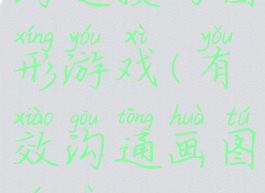 xíng yóu xì yǒu
形游戏(有
xiào gōu tōng huà tú
效沟通画图